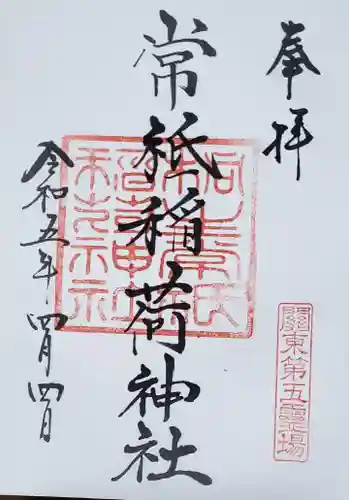 奉拝
常祇稲荷神社
令和五年四月四日
關東第五霊場